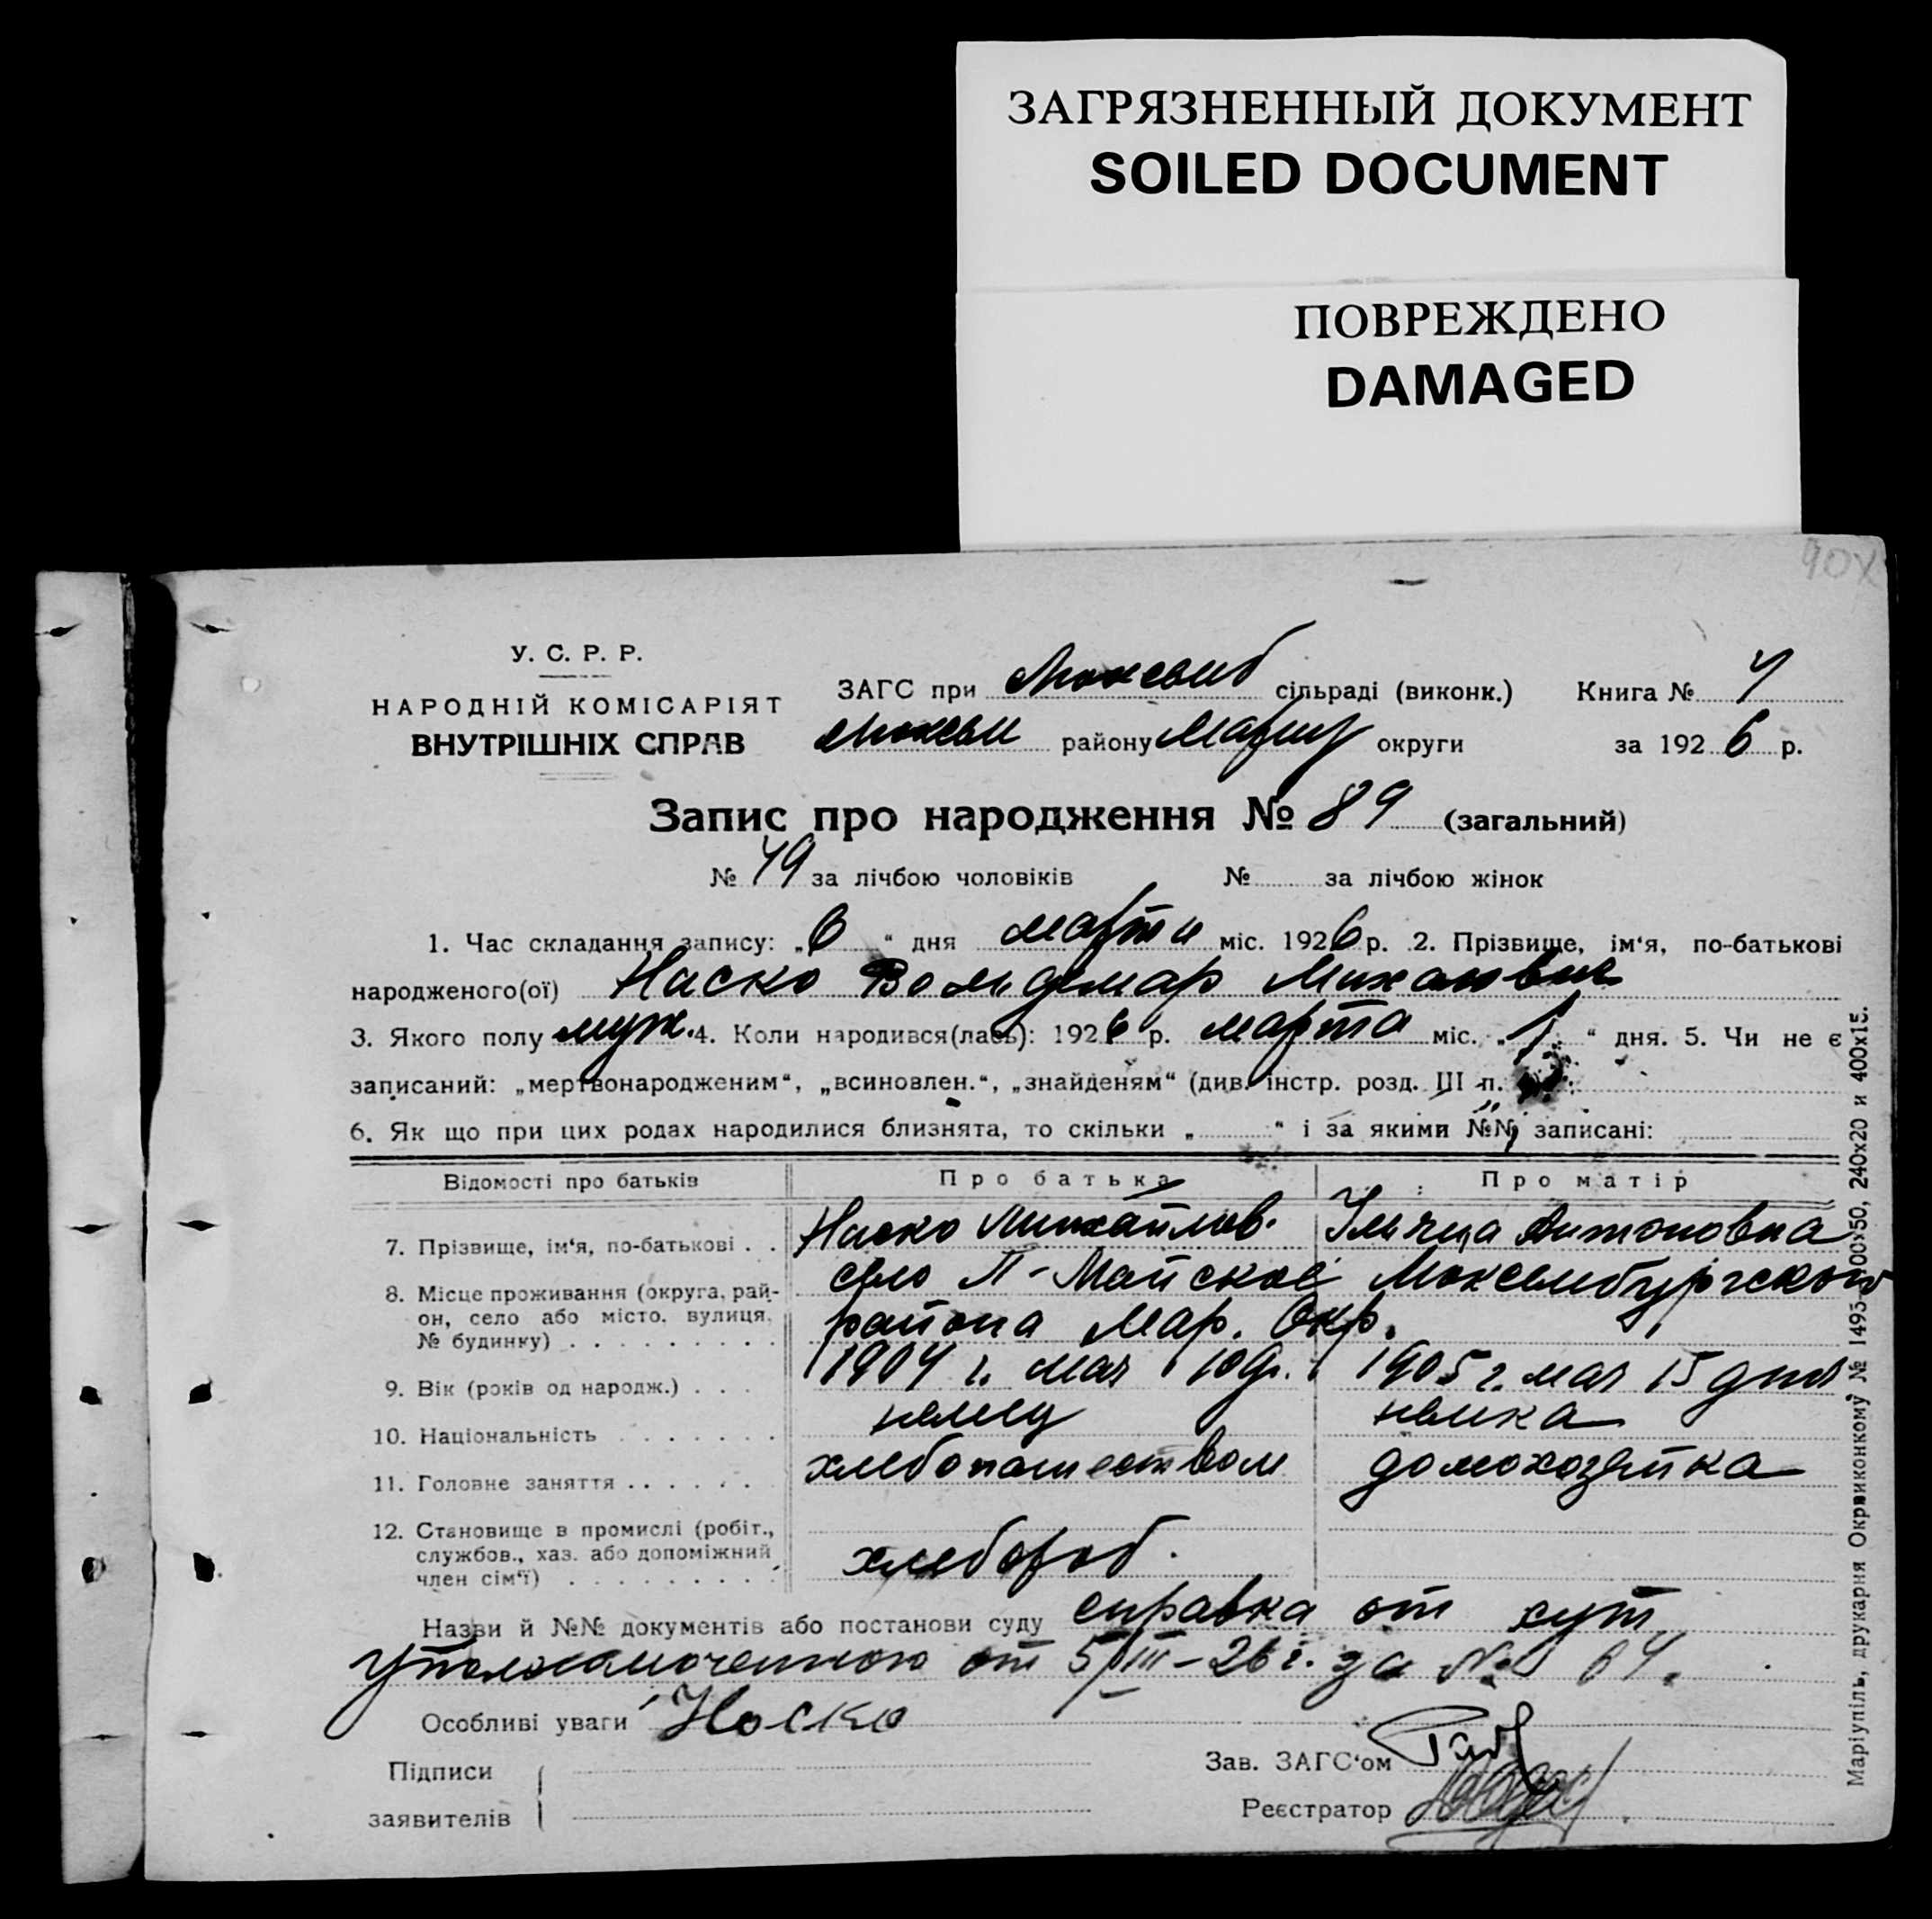 ЗАГРЯЗНЕННЫЙ ДОКУМЕНТ
SOILED DOCUMENT
ПОВРЕЖДЕНО
DAMAGED
90
У. С. Р. Р.
НАРОДНІЙ КОМІСАРІЯТ
ВНУТРІШНІХ СПРАВ
ЗАГС при сільраді (виконк.) Книга №
району Мариу округи за 1926 р.
Запис про народження № 89 (загальний)
№ 49 за лічбою чоловіків № за лічбою жінок
1. Час складання запису: „6“ дня марта міс. 1926 р. 2. Прізвище, ім‘я, по-батькові
народженого(ої) Наско Вольдемар Михайлович
3. Якого полу муж. 4. Коли народився(лась): 1926 р. марта міс. „1“ дня. 5. Чи не є
записаний: „мертвонародженим“, „всиновлен.“, „знайденям“ (див. інстр. розд. III п.
6. Як що при цих родах народилися близнята, то скільки „ “ і за якими №№ записані:
Відомості про батьків Про батька Про матір
7. Прізвище, ім‘я, по-батькові . . Наско Михайлов. Антоновна
8. Місце проживання (округа, рай-
он, село або місто, вулиця,
№ будинку) село П-Майское Люксембургского
района Мар. Окр.
9. Вік (років од народж.) . . . 1904 г. мая 10 д. 1905 г. мая 15 дня
10. Національність немец немка
11. Головне заняття хлебопашеством домохозяйка
12. Становище в промислі (робіт.,
службов., хаз. або допоміжний
член сім‘ї) хлебороб.
Назви й №№ документів або постанови суду справка от хут
уполномоченного от 5/III-26 г. за № 64.
Особливі уваги Носко
Підписи
заявителів
Зав. ЗАГС‘ом
Реєстратор
Маріупіль, друкарня Окрвиконкому № 1495- 00x50, 240x20 и 400x15.